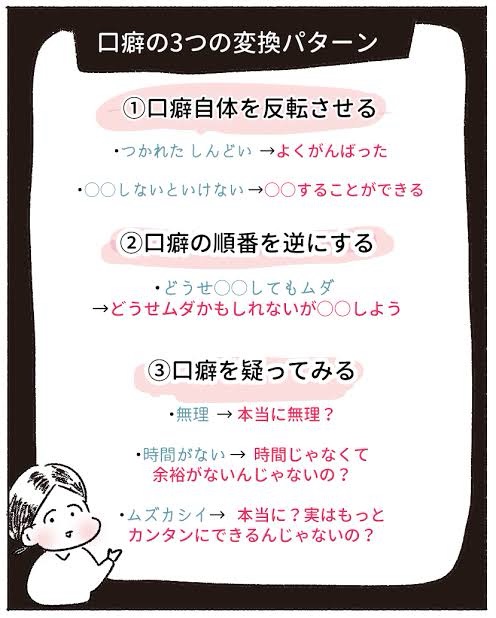 口癖の3つの変換パターン
①口癖自体を反転させる
・つかれた しんどい →よくがんばった
・〇〇しないといけない→〇〇することができる
②口癖の順番を逆にする
・どうせ〇〇してもムダ
→どうせムダかもしれないが〇〇しよう
③口癖を疑ってみる
・無理 → 本当に無理？
・時間がない → 時間じゃなくて
余裕がないんじゃないの？
・ムズカシイ→ 本当に？実はもっと
カンタンにできるんじゃないの？